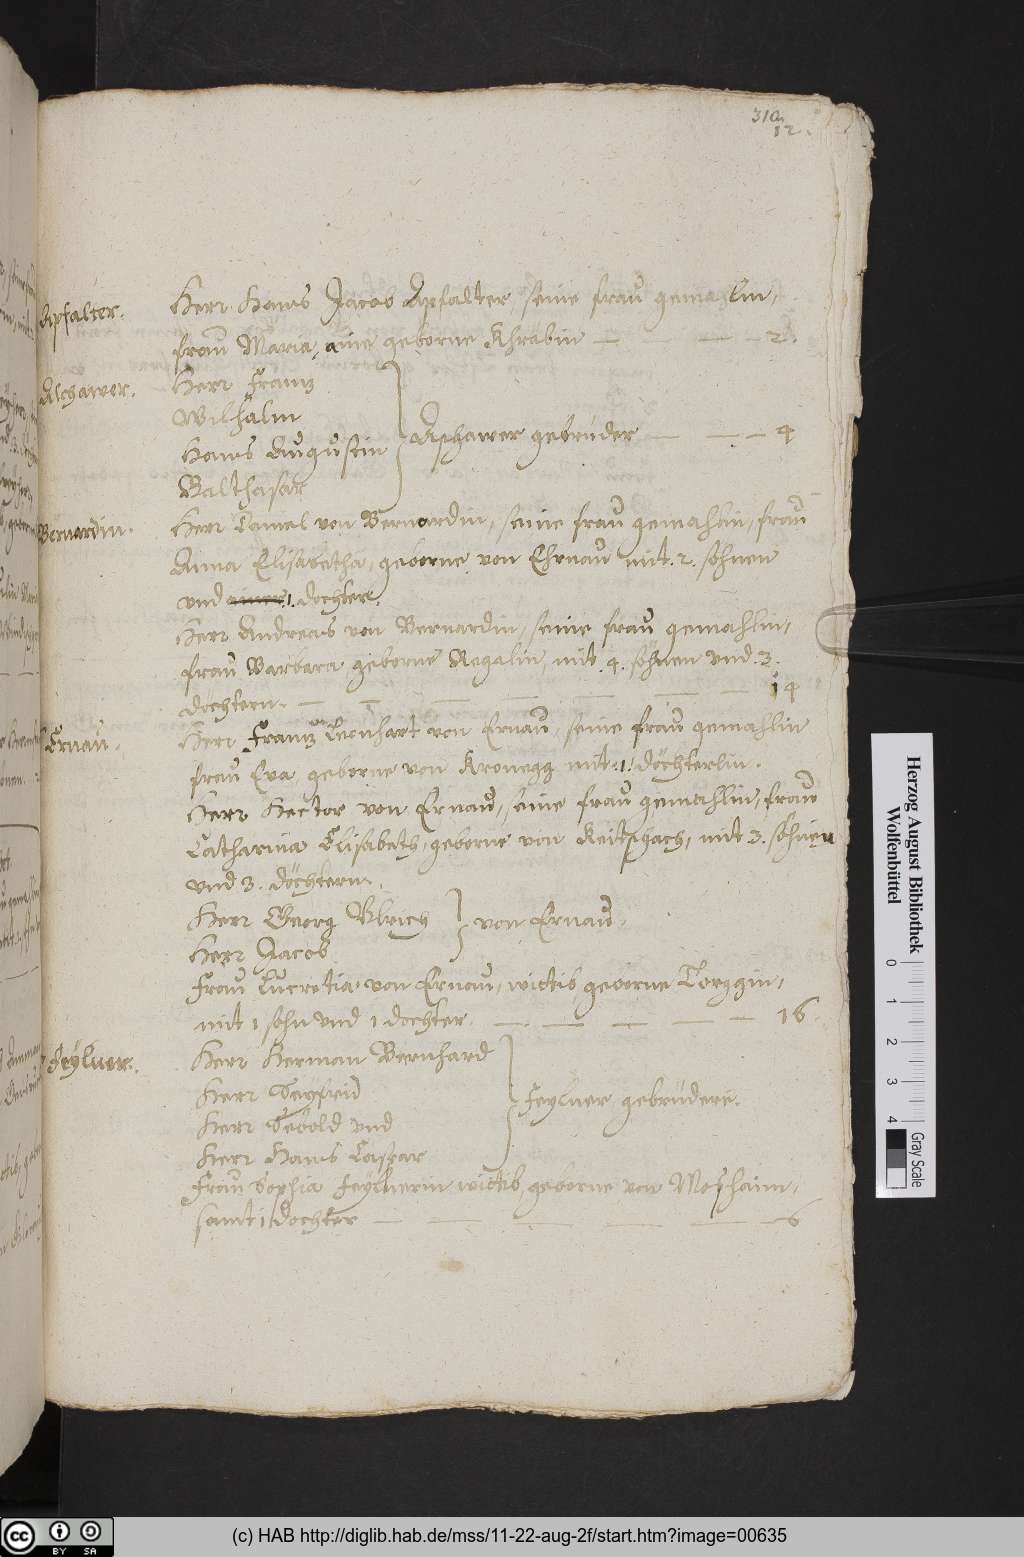 310.
12.
Apfalter. Herr Hans Jacob Apfalter, seine frau gemahlin,
frau Maria, aine geborne Khrabin — — — 2.
Aschawer. Herr Frantz
Wilhalm
Hans Augustin
Balthasar
Aschawer gebrüder — — — 4
Bernardin. Herr Daniel von Bernardin, seine frau gemahlin, frau
Anna Elisabetha, geborne von Ehrnau mit .2. söhnen
und .1. dochter.
Herr Andreas von Bernardin, seine frau gemahlin,
frau Barbara geborne Regalin, mit .4. söhnen und .3.
döchtern. — — — — — — 14
Ernau. Herr Frantz Leonhart von Ernau, seine frau gemahlin
frau Eva, geborne von Kronegg mit .1. döchterlin.
Herr Hector von Ernau, seine frau gemahlin, frau
Catharina Elisabeth, geborne von Keitschach, mit 3. söhnen
und 3. döchtern.
Herr Georg Ulrich
Herr Jacob
von Ernau.
Frau Lucretia von Ernau, wittib geborne
mit 1 sohn und 1 dochter. — — — — — 16.
Feylner. Herr Herman Bernhard
Herr Seyfrid
Herr Sebold und
Herr Hans Caspar
Feylner gebrüdere.
Frau Sophia Feylnerin wittib, geborne von
samt 1 dochter — — — — — 6
Herzog August Bibliothek
Wolfenbüttel
0 1 2 3 4
Gray Scale
cc BY SA
(c) HAB http://diglib.hab.de/mss/11-22-aug-2f/start.htm?image=00635